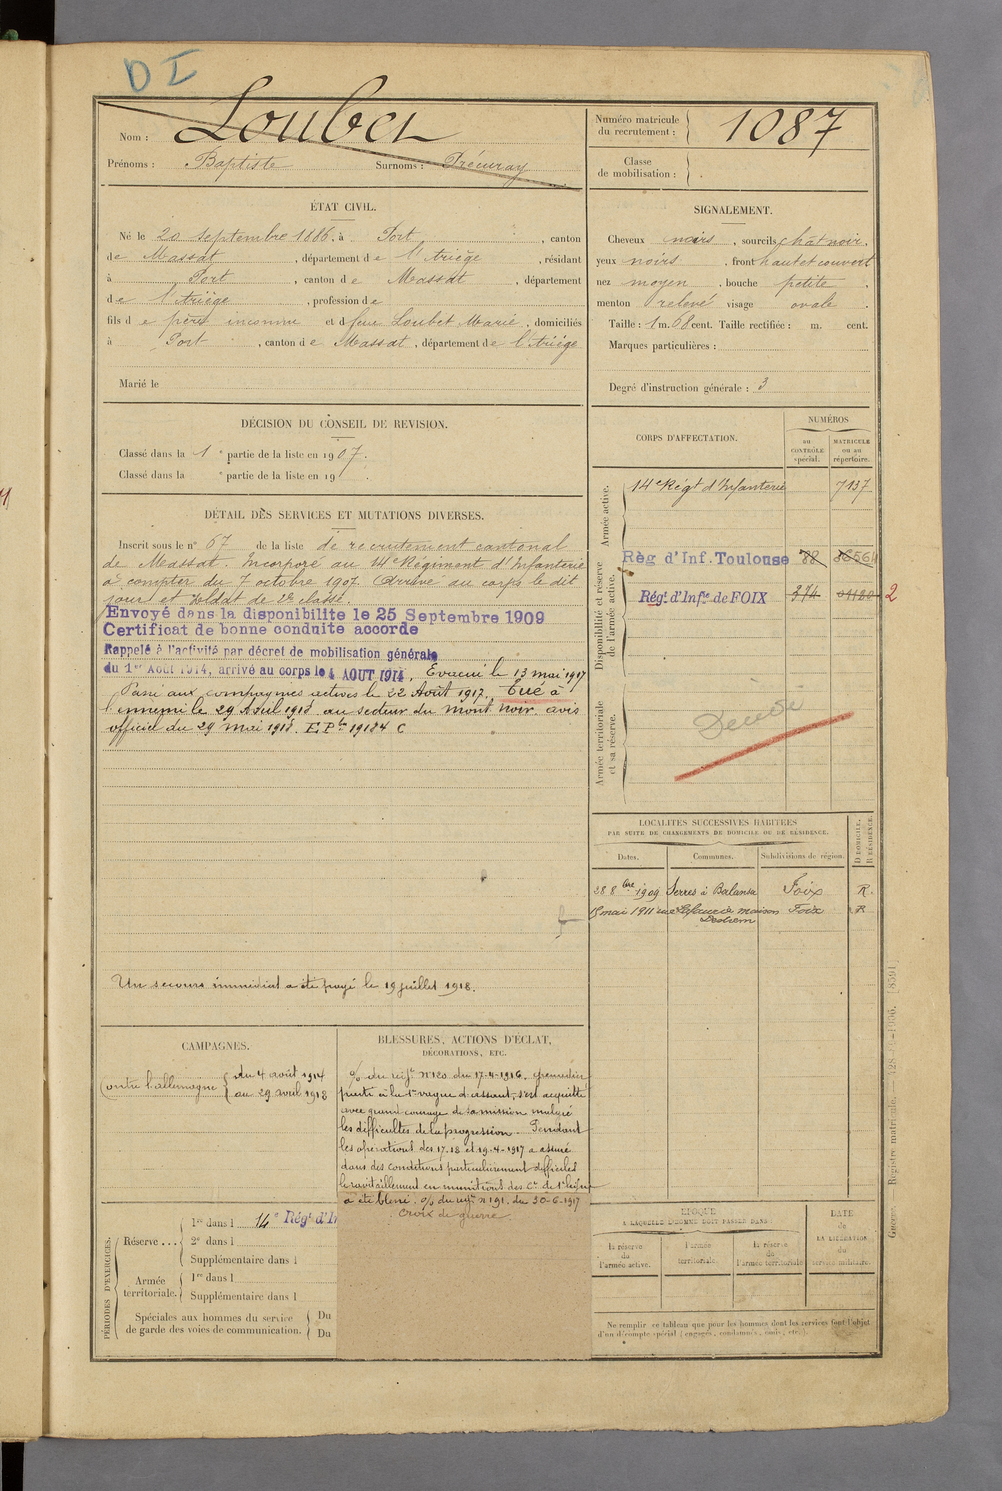 D I
Nom : Loubet
Prénoms : Baptiste Surnoms :
Numéro matricule du recrutement : 1087
Classe de mobilisation :
ÉTAT CIVIL.
Né le 20 septembre 1886, à Port, canton
de Massat, département de l'Ariège, résidant
à Port, canton de Massat, département
de l'Ariège, profession de
fils de père inconnu et d feue Loubet Marie, domiciliés
à Port, canton de Massat, département de l'Ariège
Marié le
SIGNALEMENT.
Cheveux noirs, sourcils chât noir,
yeux noirs, front haut et couvert
nez moyen, bouche petite,
menton relevé visage ovale.
Taille : 1 m. 68 cent. Taille rectifiée : m. cent.
Marques particulières :
Degré d'instruction générale : 3
DÉCISION DU CONSEIL DE REVISION.
Classé dans la 1e partie de la liste en 1907.
Classé dans la e partie de la liste en 19
DÉTAIL DES SERVICES ET MUTATIONS DIVERSES.
Inscrit sous le n° 67 de la liste de recrutement cantonal
de Massat. Incorporé au 14e Régiment d'Infanterie
à compter du 7 octobre 1907. Arrivé au corps le dit
jour et soldat de 2e classe.
Envoyé dans la disponibilite le 25 Septembre 1909
Certificat de bonne conduite accorde
Rappelé à l'activité par décret de mobilisation générale
du 1er Août 1914, arrivé au corps le 4 AOUT 1914, Evacué le 13 mai 1917
Passé aux compagnies actives le 22 Août 1917. Tué à
l'ennemi le 29 Avril 1918 au secteur du Mont Noir. avis
officiel du 29 mai 1918. 19184 C
Un secours immédiat a été payé le 19 juillet 1918.
CORPS D'AFFECTATION.
NUMÉROS
au CONTRÔLE spécial.
MATRICULE ou au répertoire.
Armée active.
14e Régt d'Infanterie 7137
Disponibilité et réserve de l'armée active.
Règ d'Inf. Toulouse 88
Régt d'Infie de FOIX 374 2
Armée territoriale et sa réserve.
Décédé
LOCALITÉS SUCCESSIVES HABITÉES
PAR SUITE DE CHANGEMENTS DE DOMICILE OU DE RÉSIDENCE.
Dates. Communes. Subdivisions de région. D DOMICILE. R RÉSIDENCE.
28 8bre 1909 Serres à Balansa Foix R.
15 mai 1911 rue maison Foix R
CAMPAGNES.
Contre l'allemagne du 4 août 1914
au 29 avril 1918
BLESSURES, ACTIONS D'ÉCLAT,
DÉCORATIONS, ETC.
% du régt n°120 du 17-4-1916. grenadier
partie à la 1re vague d'assaut, s'est acquitté
avec grand courage de sa mission malgré
les difficultés de la progression. Pendant
les opérations des 17. 18 et 19-4-1917 a assuré
dans des conditions particulièrement difficiles
le ravitaillement en munitions des Cies de 1ère ligne
a été blessé. % du régt n°191. du 30-6-1917
croix de guerre
PÉRIODES D'EXERCICES.
Réserve ... 1re dans l 14e Régt d'In
2e dans l
Supplémentaire dans l
Armée territoriale. 1re dans l
Supplémentaire dans l
Spéciales aux hommes du service Du
de garde des voies de communication. Du
ÉPOQUE
À LAQUELLE L'HOMME DOIT PASSER DANS
la réserve de l'armée active.
l'armée territoriale.
la réserve de l'armée territoriale
DATE de LA LIBÉRATION du service militaire.
Ne remplir ce tableau que pour les hommes dont les services font l'objet
d'un décompte spécial (engagés, condamnés, omis, etc.).